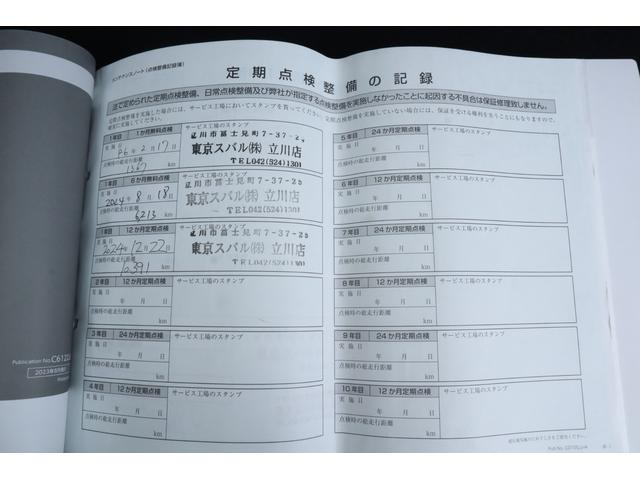 メンテナンスノート(点検整備記録簿)
定期点検整備の記録
法で定められた定期点検整備、日常点検整備及び弊社が指定する点検整備を実施しなかったことに起因する不具合は保証修理致しません。
定期点検を実施した場合には、サービス工場においてスタンプを貰ってください。定期点検整備を実施していない場合には、保証を受ける権利を失うこともありますので、
確実に実施してください。
1年目 1か月無料点検
サービス工場のスタンプ
実施日 R6年2月17日
点検時の総走行距離
1367 km
立川市富士見町7-37-2
東京スバル㈱ 立川店
TEL042(524)1301
1年目 6か月無料点検
サービス工場のスタンプ
実施日 2024年8月18日
点検時の総走行距離
6213 km
立川市富士見町7-37-23
東京スバル㈱ 立川店
TEL042(524)1301
1年目 12か月定期点検
サービス工場のスタンプ
実施日 2024年12月22日
点検時の総走行距離
10391 km
立川市富士見町7-37-23
東京スバル㈱ 立川店
TEL042(524)1301
2年目 12か月定期点検
サービス工場のスタンプ
実施日 年 月 日
点検時の総走行距離
km
3年目 24か月定期点検
サービス工場のスタンプ
実施日 年 月 日
点検時の総走行距離
km
4年目 12か月定期点検
サービス工場のスタンプ
実施日 年 月 日
点検時の総走行距離
km
5年目 24か月定期点検
サービス工場のスタンプ
実施日 年 月 日
点検時の総走行距離
km
6年目 12か月定期点検
サービス工場のスタンプ
実施日 年 月 日
点検時の総走行距離
km
7年目 24か月定期点検
サービス工場のスタンプ
実施日 年 月 日
点検時の総走行距離
km
8年目 12か月定期点検
サービス工場のスタンプ
実施日 年 月 日
点検時の総走行距離
km
9年目 24か月定期点検
サービス工場のスタンプ
実施日 年 月 日
点検時の総走行距離
km
10年目 12か月定期点検
サービス工場のスタンプ
実施日 年 月 日
点検時の総走行距離
km
Publication No.
2023年8月